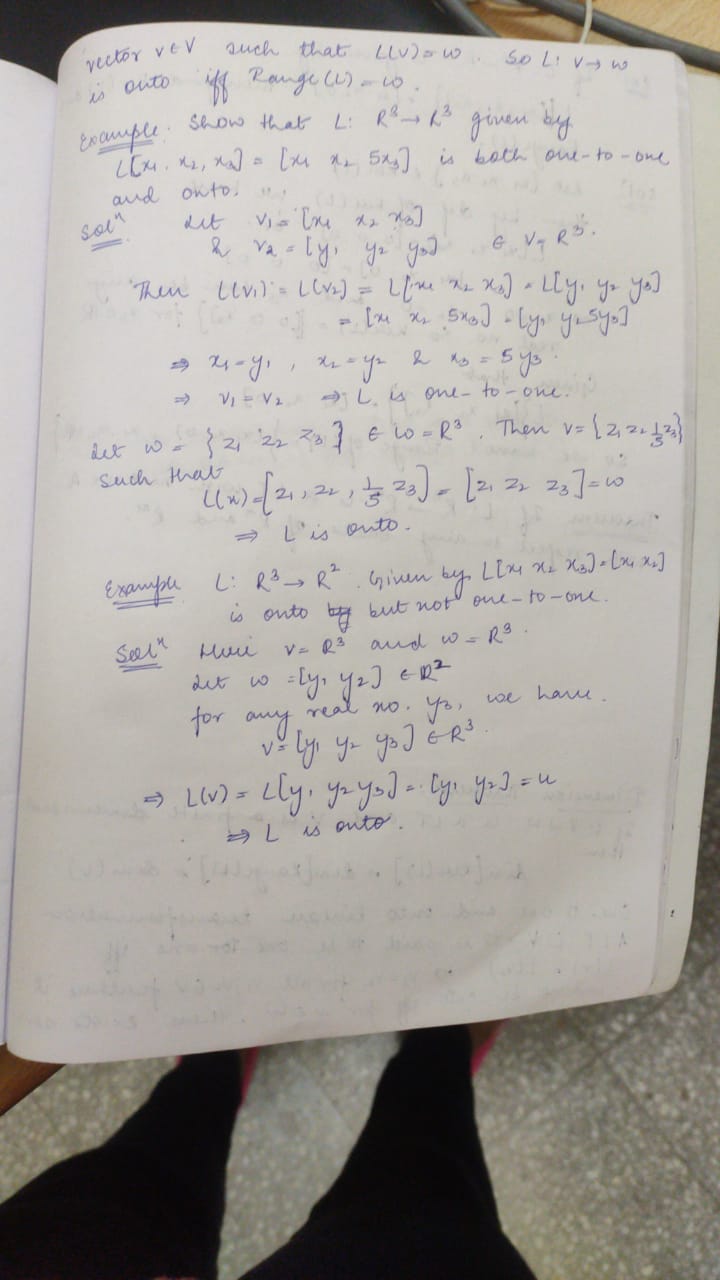 vector v ∈ V such that L(v) = w. So L: V → w
is onto iff Range(L) = w.
Example: Show that L: R³ → R³ given by
L[x₁, x₂, x₃] = [x₁ x₂ 5x₃] is both one-to-one
and onto.
Solⁿ Let v₁ = [x₁ x₂ x₃]
& v₂ = [y₁ y₂ y₃] ∈ V = R³.
Then L(v₁) = L(v₂) = L[x₁ x₂ x₃] = L[y₁ y₂ y₃]
= [x₁ x₂ 5x₃] = [y₁ y₂ 5y₃]
⇒ x₁ = y₁, x₂ = y₂ & x₃ = 5y₃.
⇒ v₁ = v₂ ⇒ L is one-to-one.
Let w = {z₁ z₂ z₃} ∈ w = R³. Then v = {z₁ z₂ 1/5 z₃}
Such that
L(x) = [z₁, z₂, 1/5 z₃] = [z₁ z₂ z₃] = w
⇒ L is onto.
Example L: R³ → R². Given by L[x₁ x₂ x₃] = [x₁ x₂]
is onto but not one-to-one.
Solⁿ Here v = R³ and w = R³.
Let w = [y₁ y₂] ∈ R²
for any real no. y₃, we have.
v = [y₁ y₂ y₃] ∈ R³.
⇒ L(v) = L[y₁ y₂ y₃] = [y₁ y₂] = u
⇒ L is onto.